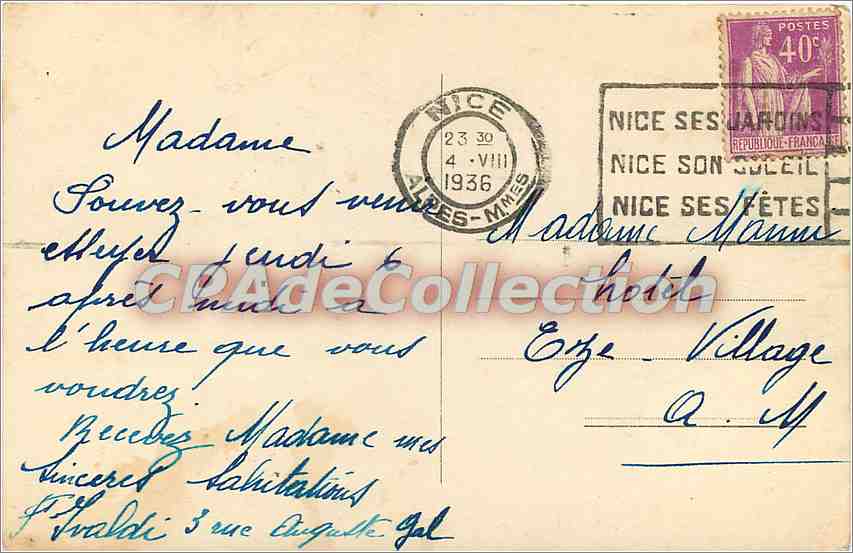 POSTES
40c
REPUBLIQUE-FRANCAISE
NICE
23 30
4 · VIII
1936
ALPES-MMES
NICE SES JARDINS
NICE SON SOLEIL
NICE SES FÊTES
Madame
Pouvez-vous venir
jeudi 6
après midi a
l'heure que vous
voudrez
Recevez Madame mes
sinceres Salutations
Ivaldi 3 rue Auguste Gal
Madame
hotel
Eze-Village
A. M
CPAdeCollection